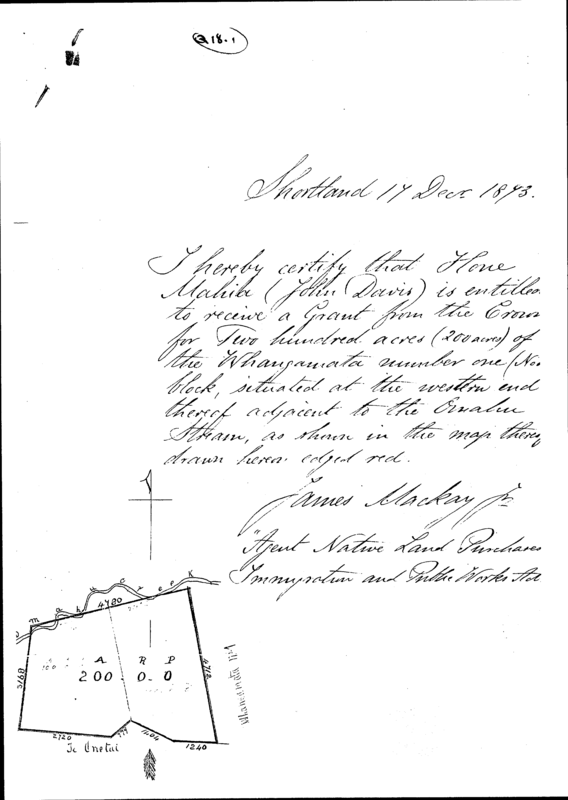 18.1
Shortland 17 Decr 1873.
I hereby certify that Hone
Mahia (John Davis) is entitled
to receive a Grant from the Crown
for Two hundred acres (200 acres) of
the Whangamata number one (No
block, situated at the western end
thereof adjacent to the
Stream, as shown in the map thereof
drawn hereon edged red.
James Mackay Jr
"Agent Native Land Purchases
Immigration and Public Works Act
4780
A R P
200 0 0
Whangamata No 1
2720
1204
1240
Te